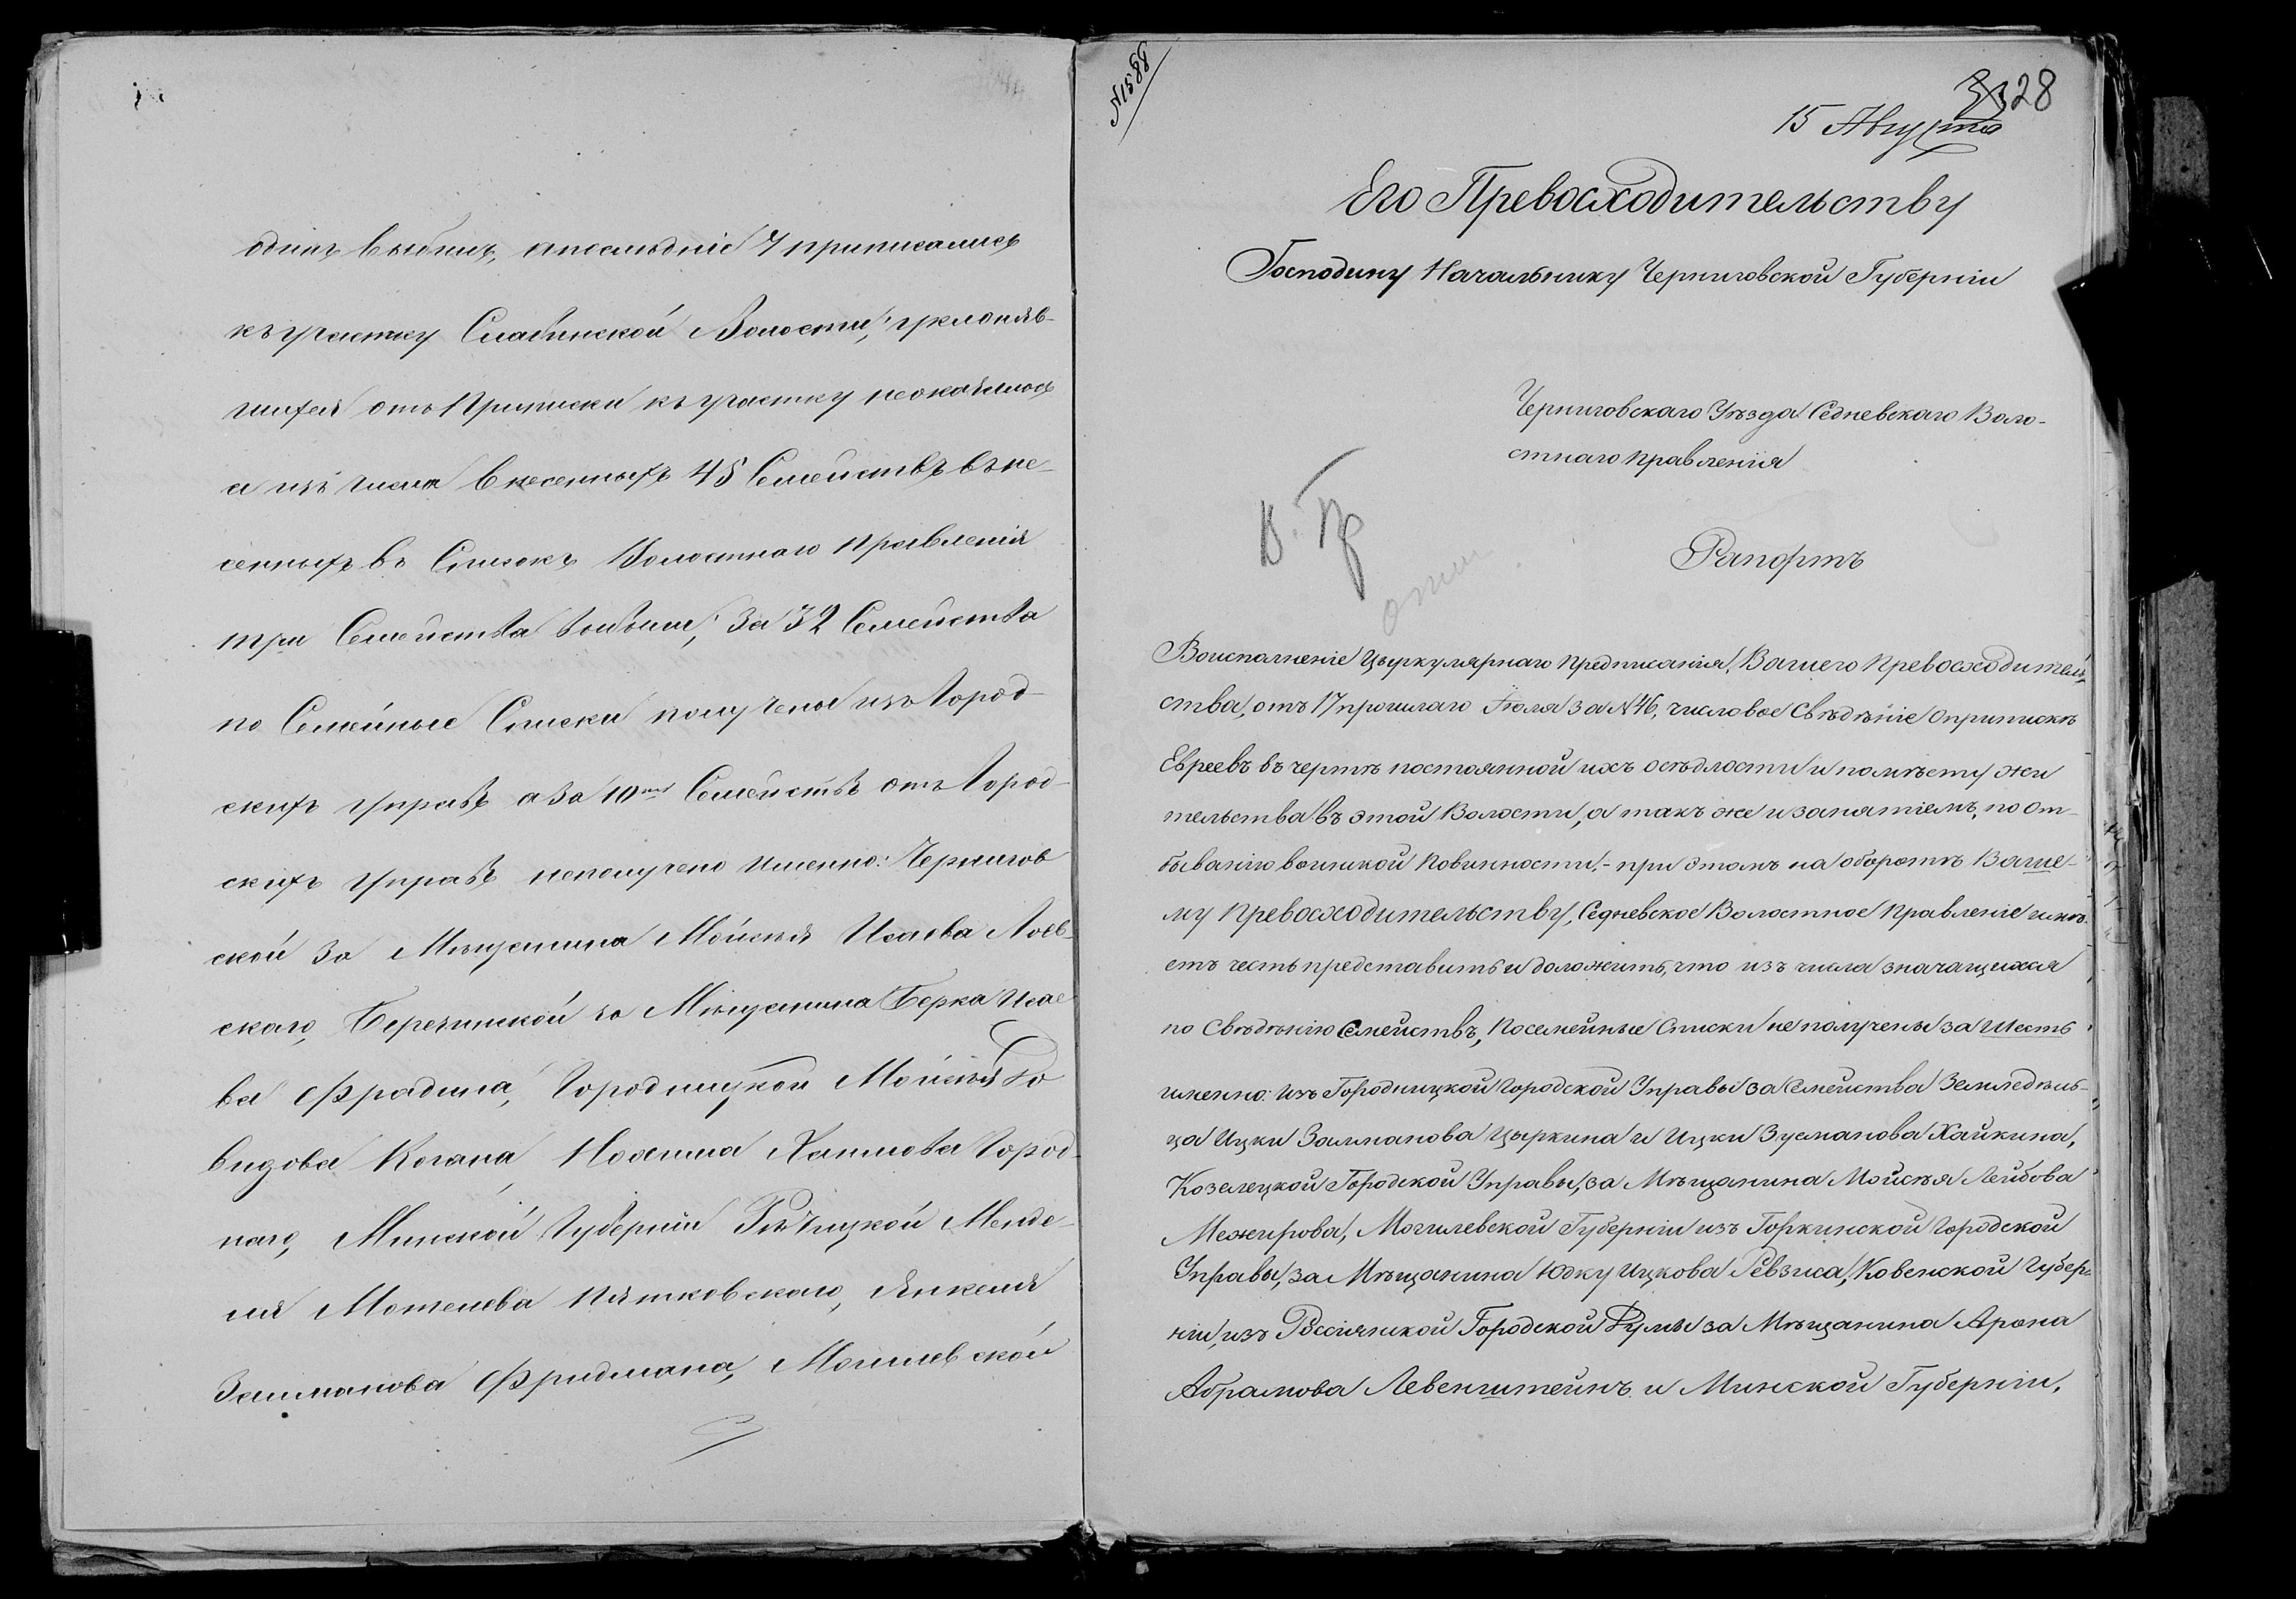 одинъ выбылъ, апослѣдніе 7 приписались
къ участку Слабинской Волости; уклоняв-
шихся отъ приписки къ участку неоказалось
а изъ числа внесенныхъ 45 Семействъ вне-
сенныхъ въ Списокъ Волостнаго Правленія
три Семейства выбыли; За 32 Семейства
по Семейные Списки получены изъ Город-
скихъ управъ а за 10ть Семействъ отъ Город-
скихъ управъ неполучено именно: Чернигов
ской за Мѣщанина Мойсея Исаева Лоев-
скаго, Березинской за Мѣщанина Берка Исае
ва Фрадина, Городницкой Мойсея До
видова Когана, Нохима Хаимова Город-
наго, Минской Губерніи Рѣчицкой Менде-
ля Мотелева Пятковскаго, Янкеля
Залманова Фридмана, Могилевской
№1588
28
15 Августа
Его Превосходительству
Господину Начальнику Черниговской Губерніи
Черниговскаго Уѣзда Седневскаго Воло-
стнаго правленія
Рапортъ
Воисполненіе Цыркулярнаго предписанія, Вашего Превосходитель
ства, отъ 17 прошлаго Іюля за №46, числовое Свѣдѣніе оприпискѣ
Евреевъ въ чертѣ постоянной ихъ осѣдлости и помѣсту жи
тельства въ этой Волости, а такъ же и занятіемъ, по от-
быванію воинской повинности, - при этомъ на оборотѣ Ваше-
му Превосходительству, Седневское Волостное Правленіе имѣ-
етъ честь представить и доложить, что изъ числа значащихся
по Свѣдѣнію Семействъ, Посемейные Списки не получены за шесть
именно: изъ Городницкой Городской Управы за Семейства Земледѣль-
ца Ицки Залманова Цыркина и Ицки Зусманова Хайкина,
Козелецкой Городской Управы, за Мѣщанина Мойсея Лейбова
Межирова, Могилевской Губерніи изъ Горкинской Городской
Управы, за Мѣщанина Юдку Ицкова Ревзиса, Ковенской Губер-
ніи, изъ Россіянской Городской Думы за Мѣщанина Арона
Абрамова Левенштейнъ и Минской Губерніи,